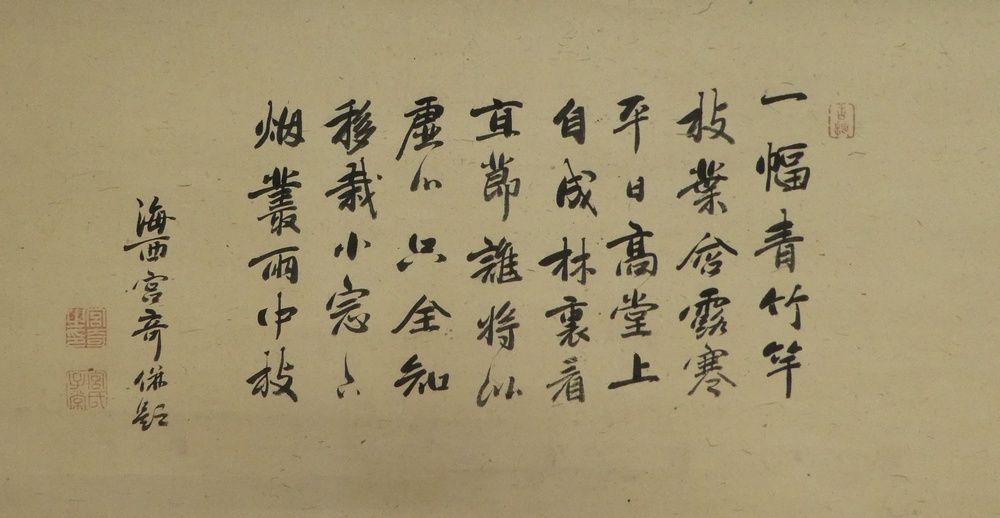 一幅青竹竿
枝葉含露寒
平日高堂上
自成林裏看
直節誰将似
虚心只全知
移栽小窓下
烟叢雨中枝
海西宮奇併題